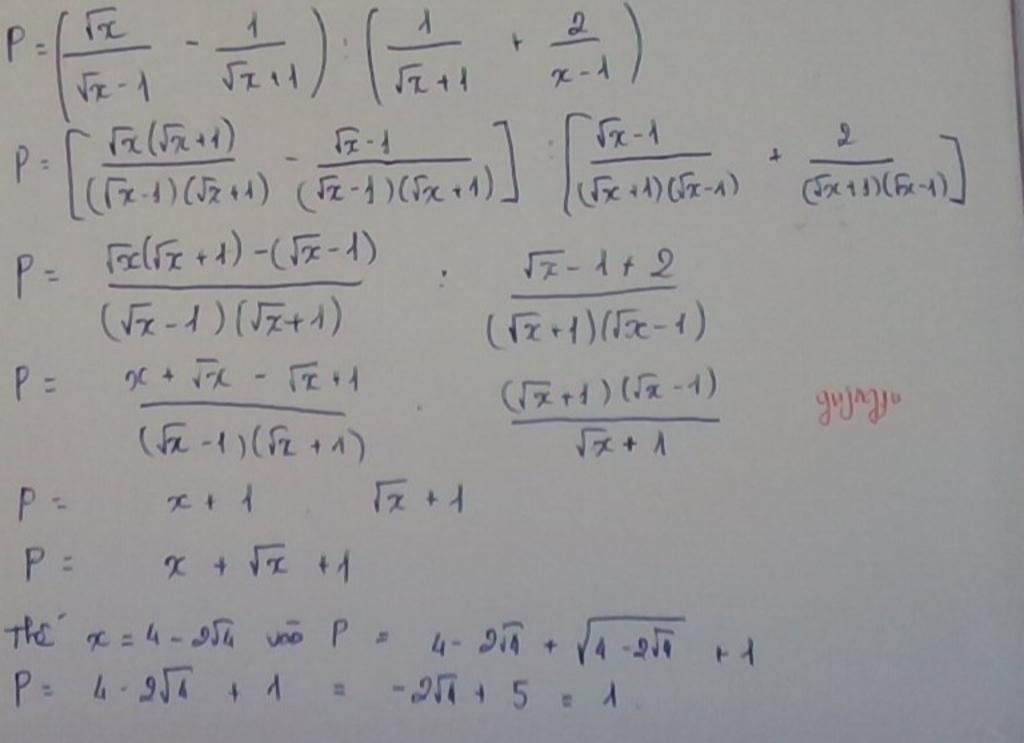 P = (√x/(√x - 1) - 1/(√x + 1)) : (1/(√x + 1) + 2/(x - 1))
P = [√x(√x + 1)/((√x - 1)(√x + 1)) - (√x - 1)/((√x - 1)(√x + 1))] : [(√x - 1)/((√x + 1)(√x - 1)) + 2/((√x + 1)(√x - 1))]
P = (√x(√x + 1) - (√x - 1))/((√x - 1)(√x + 1)) : (√x - 1 + 2)/((√x + 1)(√x - 1))
P = (x + √x - √x + 1)/((√x - 1)(√x + 1)) . ((√x + 1)(√x - 1))/(√x + 1)
P = x + 1 √x + 1
P = x + √x + 1
Thế x = 4 - 2√4 vào P = 4 - 2√4 + √(4 - 2√4) + 1
P = 4 - 2√4 + 1 = -2√4 + 5 = 1.